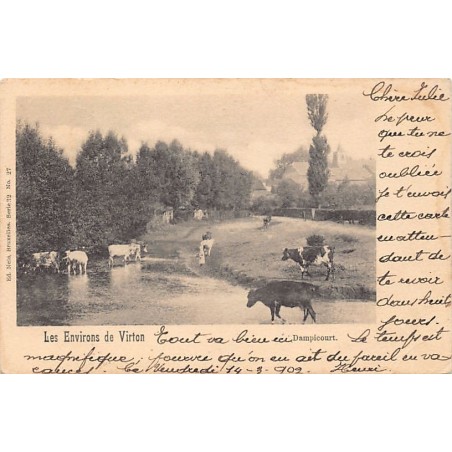 Chère Julie
De peur
que tu ne
te crois
oubliée
je t'envois
cette carte
en atten-
dant de
te revoir
dans huits
jours.
Ed. Nels, Bruxelles. Serie 72 No. 27
Les Environs de Virton
Dampicourt.
Tout va bien ici Le temps est
magnifique; pourvu qu'on en ait du pareil en va-
cances. Ce Vendredi 14-3-902 Henri